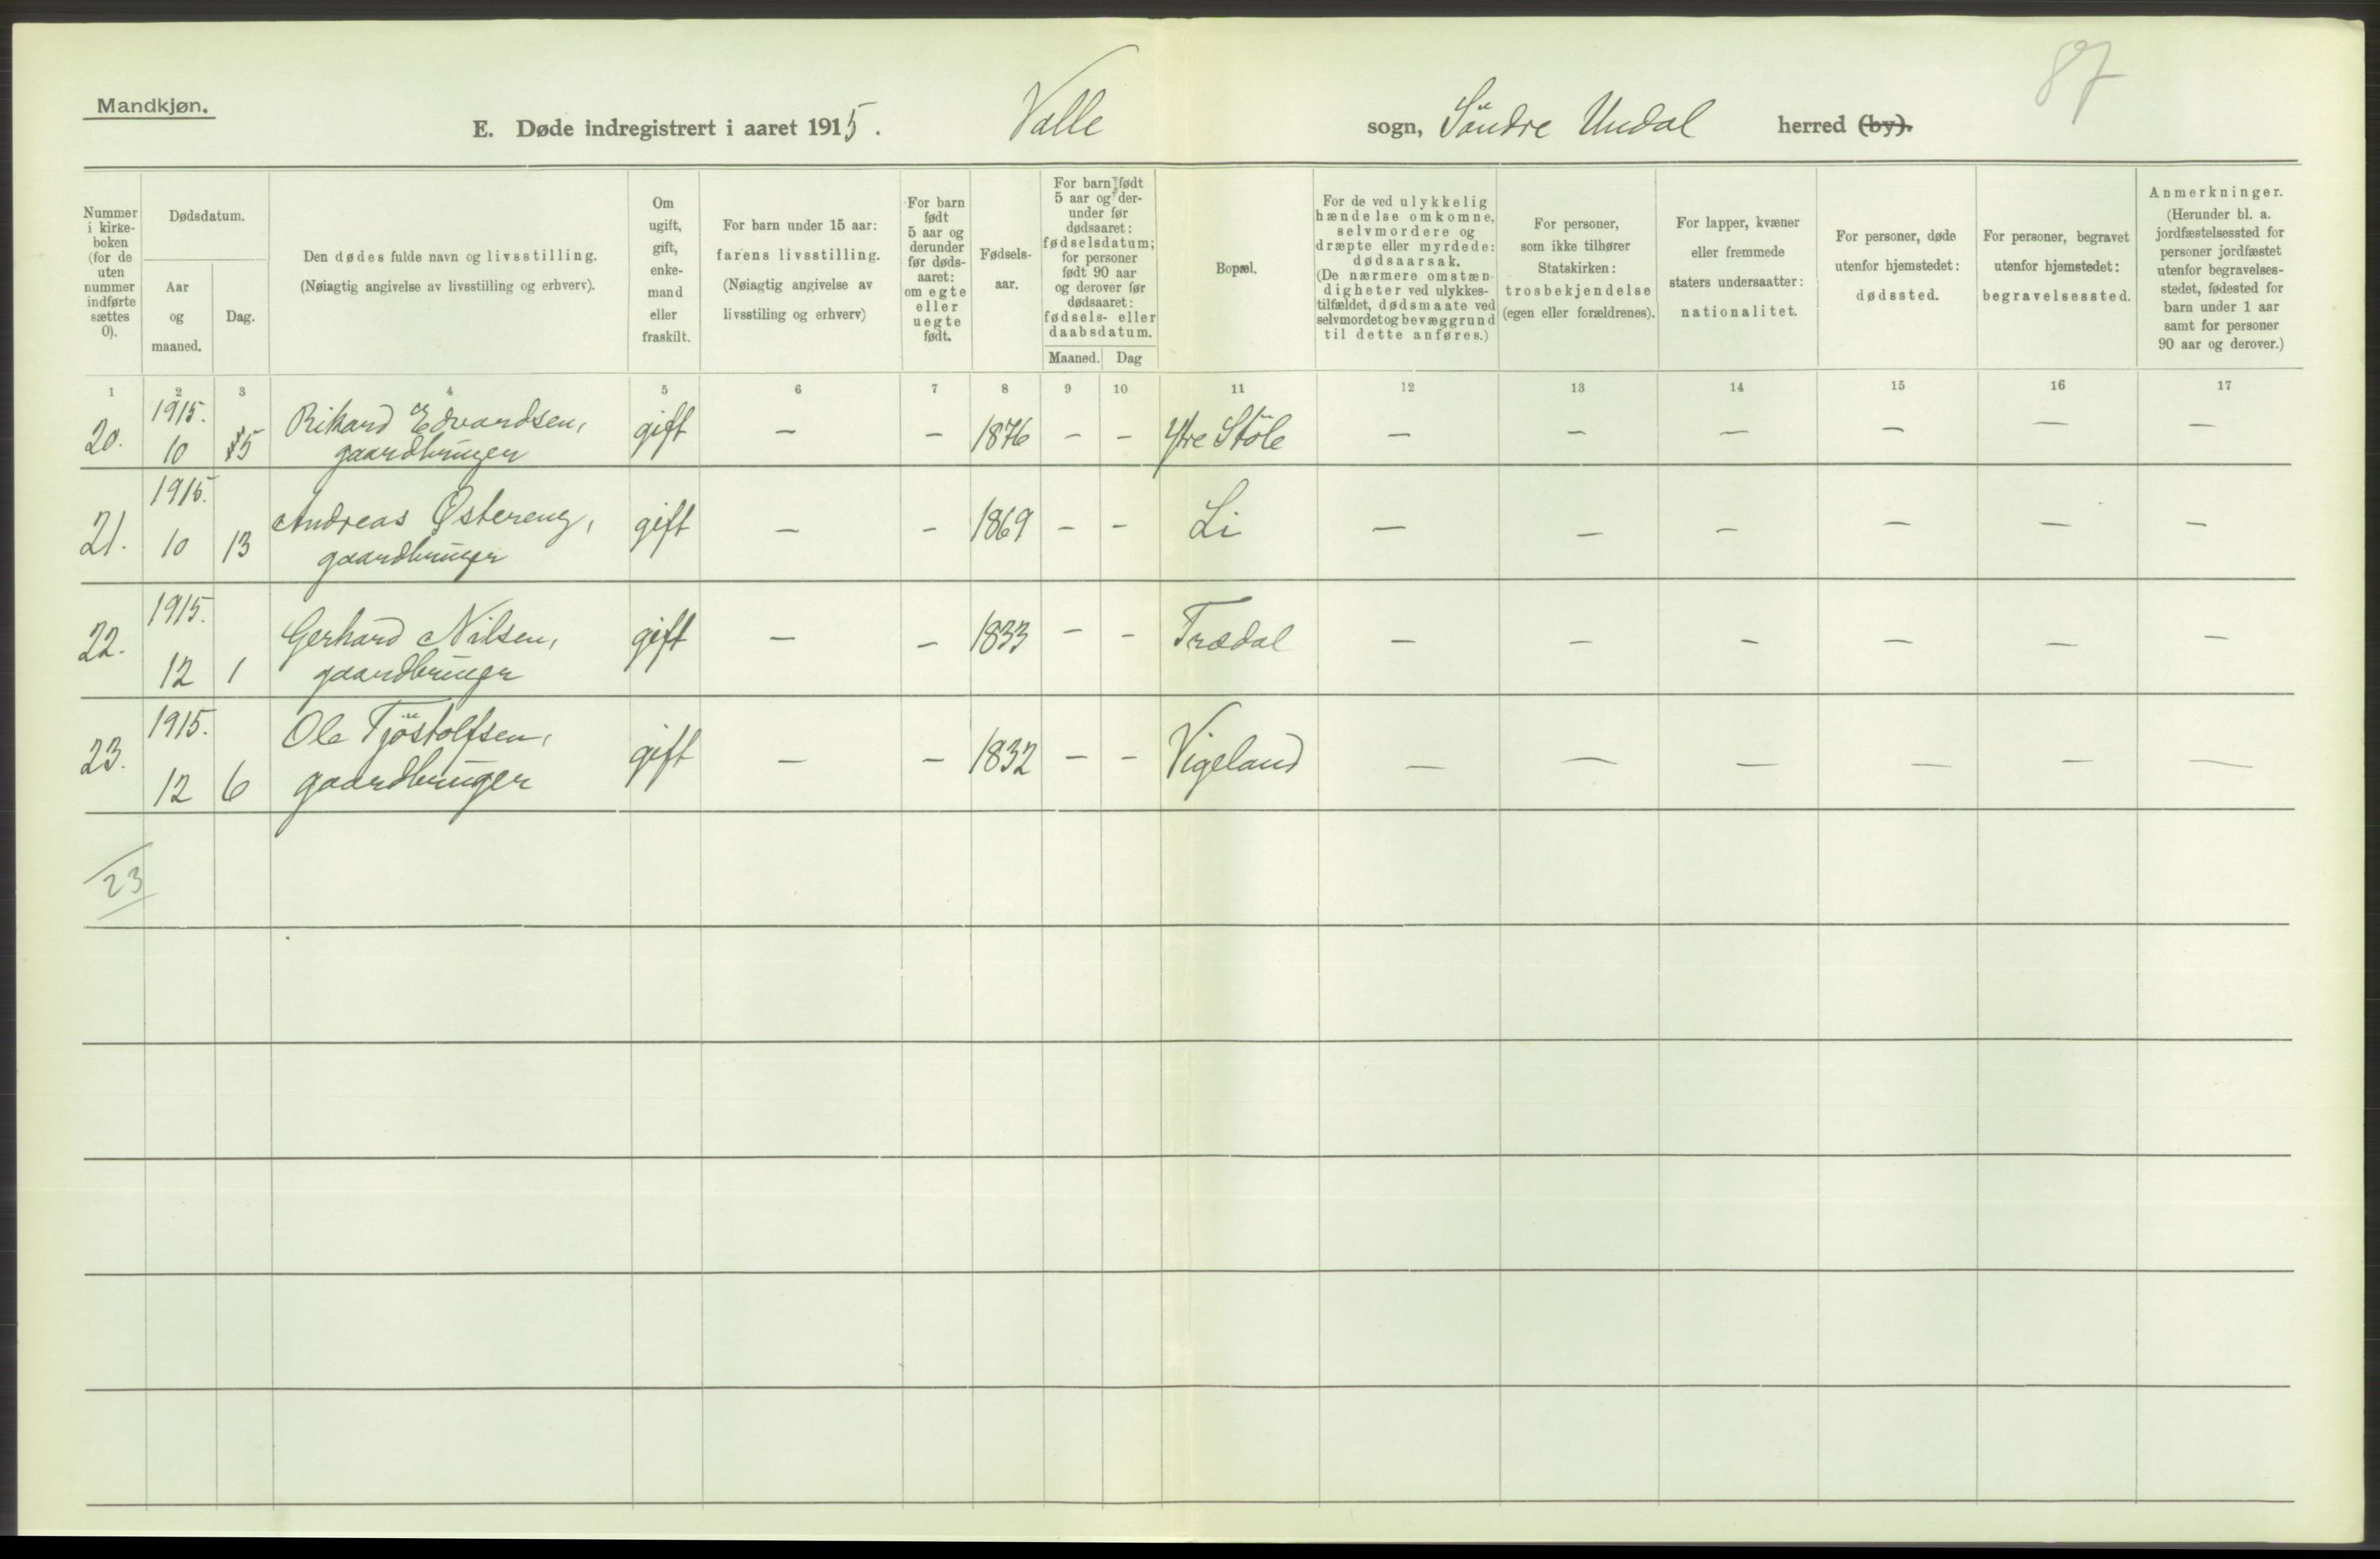 87
Mandkjøn.
E. Døde indregistrert i aaret 1915. Valle sogn, Söndre Undal herred (by).
Nummer
i kirke-
boken
(for de
uten
nummer
indførte
sættes
0).
Dødsdatum.
Aar
og
maaned.
Dag.
Den dødes fulde navn og livsstilling.
(Nøiagtig angivelse av livsstilling og erhverv).
Om
ugift,
gift,
enke-
mand
eller
fraskilt.
For barn under 15 aar:
farens livsstilling.
(Nøiagtig angivelse av
livsstiling og erhverv)
For barn
født
5 aar og
derunder
før døds-
aaret:
om egte
eller
uegte
født.
Fødsels-
aar.
For barn født
5 aar og der-
under før
dødsaaret:
fødselsdatum;
for personer
født 90 aar
og derover før
dødsaaret:
fødsels- eller
daabsdatum.
Maaned. Dag
Bopæl.
For de ved ulykkelig
hændelse omkomne,
selvmordere og
dræpte eller myrdede:
dødsaarsak.
(De nærmere omstæn-
digheter ved ulykkes-
tilfældet, dødsmaate ved
selvmordet og bevæggrund
til dette anføres.)
For personer,
som ikke tilhører
Statskirken:
trosbekjendelse
(egen eller forældrenes).
For lapper, kvæner
eller fremmede
staters undersaatter:
nationalitet.
For personer, døde
utenfor hjemstedet:
dødssted.
For personer, begravet
utenfor hjemstedet:
begravelsessted.
Anmerkninger.
(Herunder bl. a.
jordfæstelsessted for
personer jordfæstet
utenfor begravelses-
stedet, fødested for
barn under 1 aar
samt for personer
90 aar og derover.)
1 2 3 4 5 6 7 8 9 10 11 12 13 14 15 16 17
20. 1915. 10 5 Rikard Edvardsen, gift — — 1876 — — Ytre Stöle — — — — — —
gaardbruger
21. 1915. 10 13 Andreas Östereng, gift — — 1869 — — Li — — — — — —
gaardbruger
22. 1915. 12 1 Gerhard Nilsen, gift — — 1833 — — Trædal — — — — — —
gaardbruger
23. 1915. 12 6 Ole Tjöstolfsen, gift — — 1832 — — Vigeland — — — — — —
gaardbruger
23